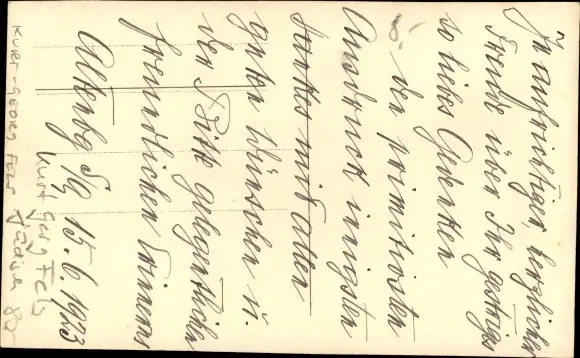 In aufrichtiger, herzlicher
Freude über Ihr gestriges
so liebes Gedenken
den primitivsten
Ausdruck innigsten
Dankes mit allen
guten Wünschen u.
der Bitte gelegentlichen
freundlichen Erinnerns
Altenbg S/A 15.6.1923
Kurt Georg Fels
KURT-GEORG FELS